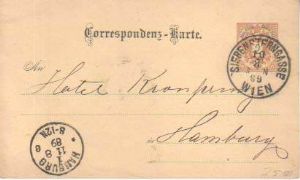 Correspondenz-Karte.
SIEBENSTERNGASSE
WIEN
89
An
Hotel Kronprinz
Hamburg
HAMBURG
1
11
8
89
8-12N